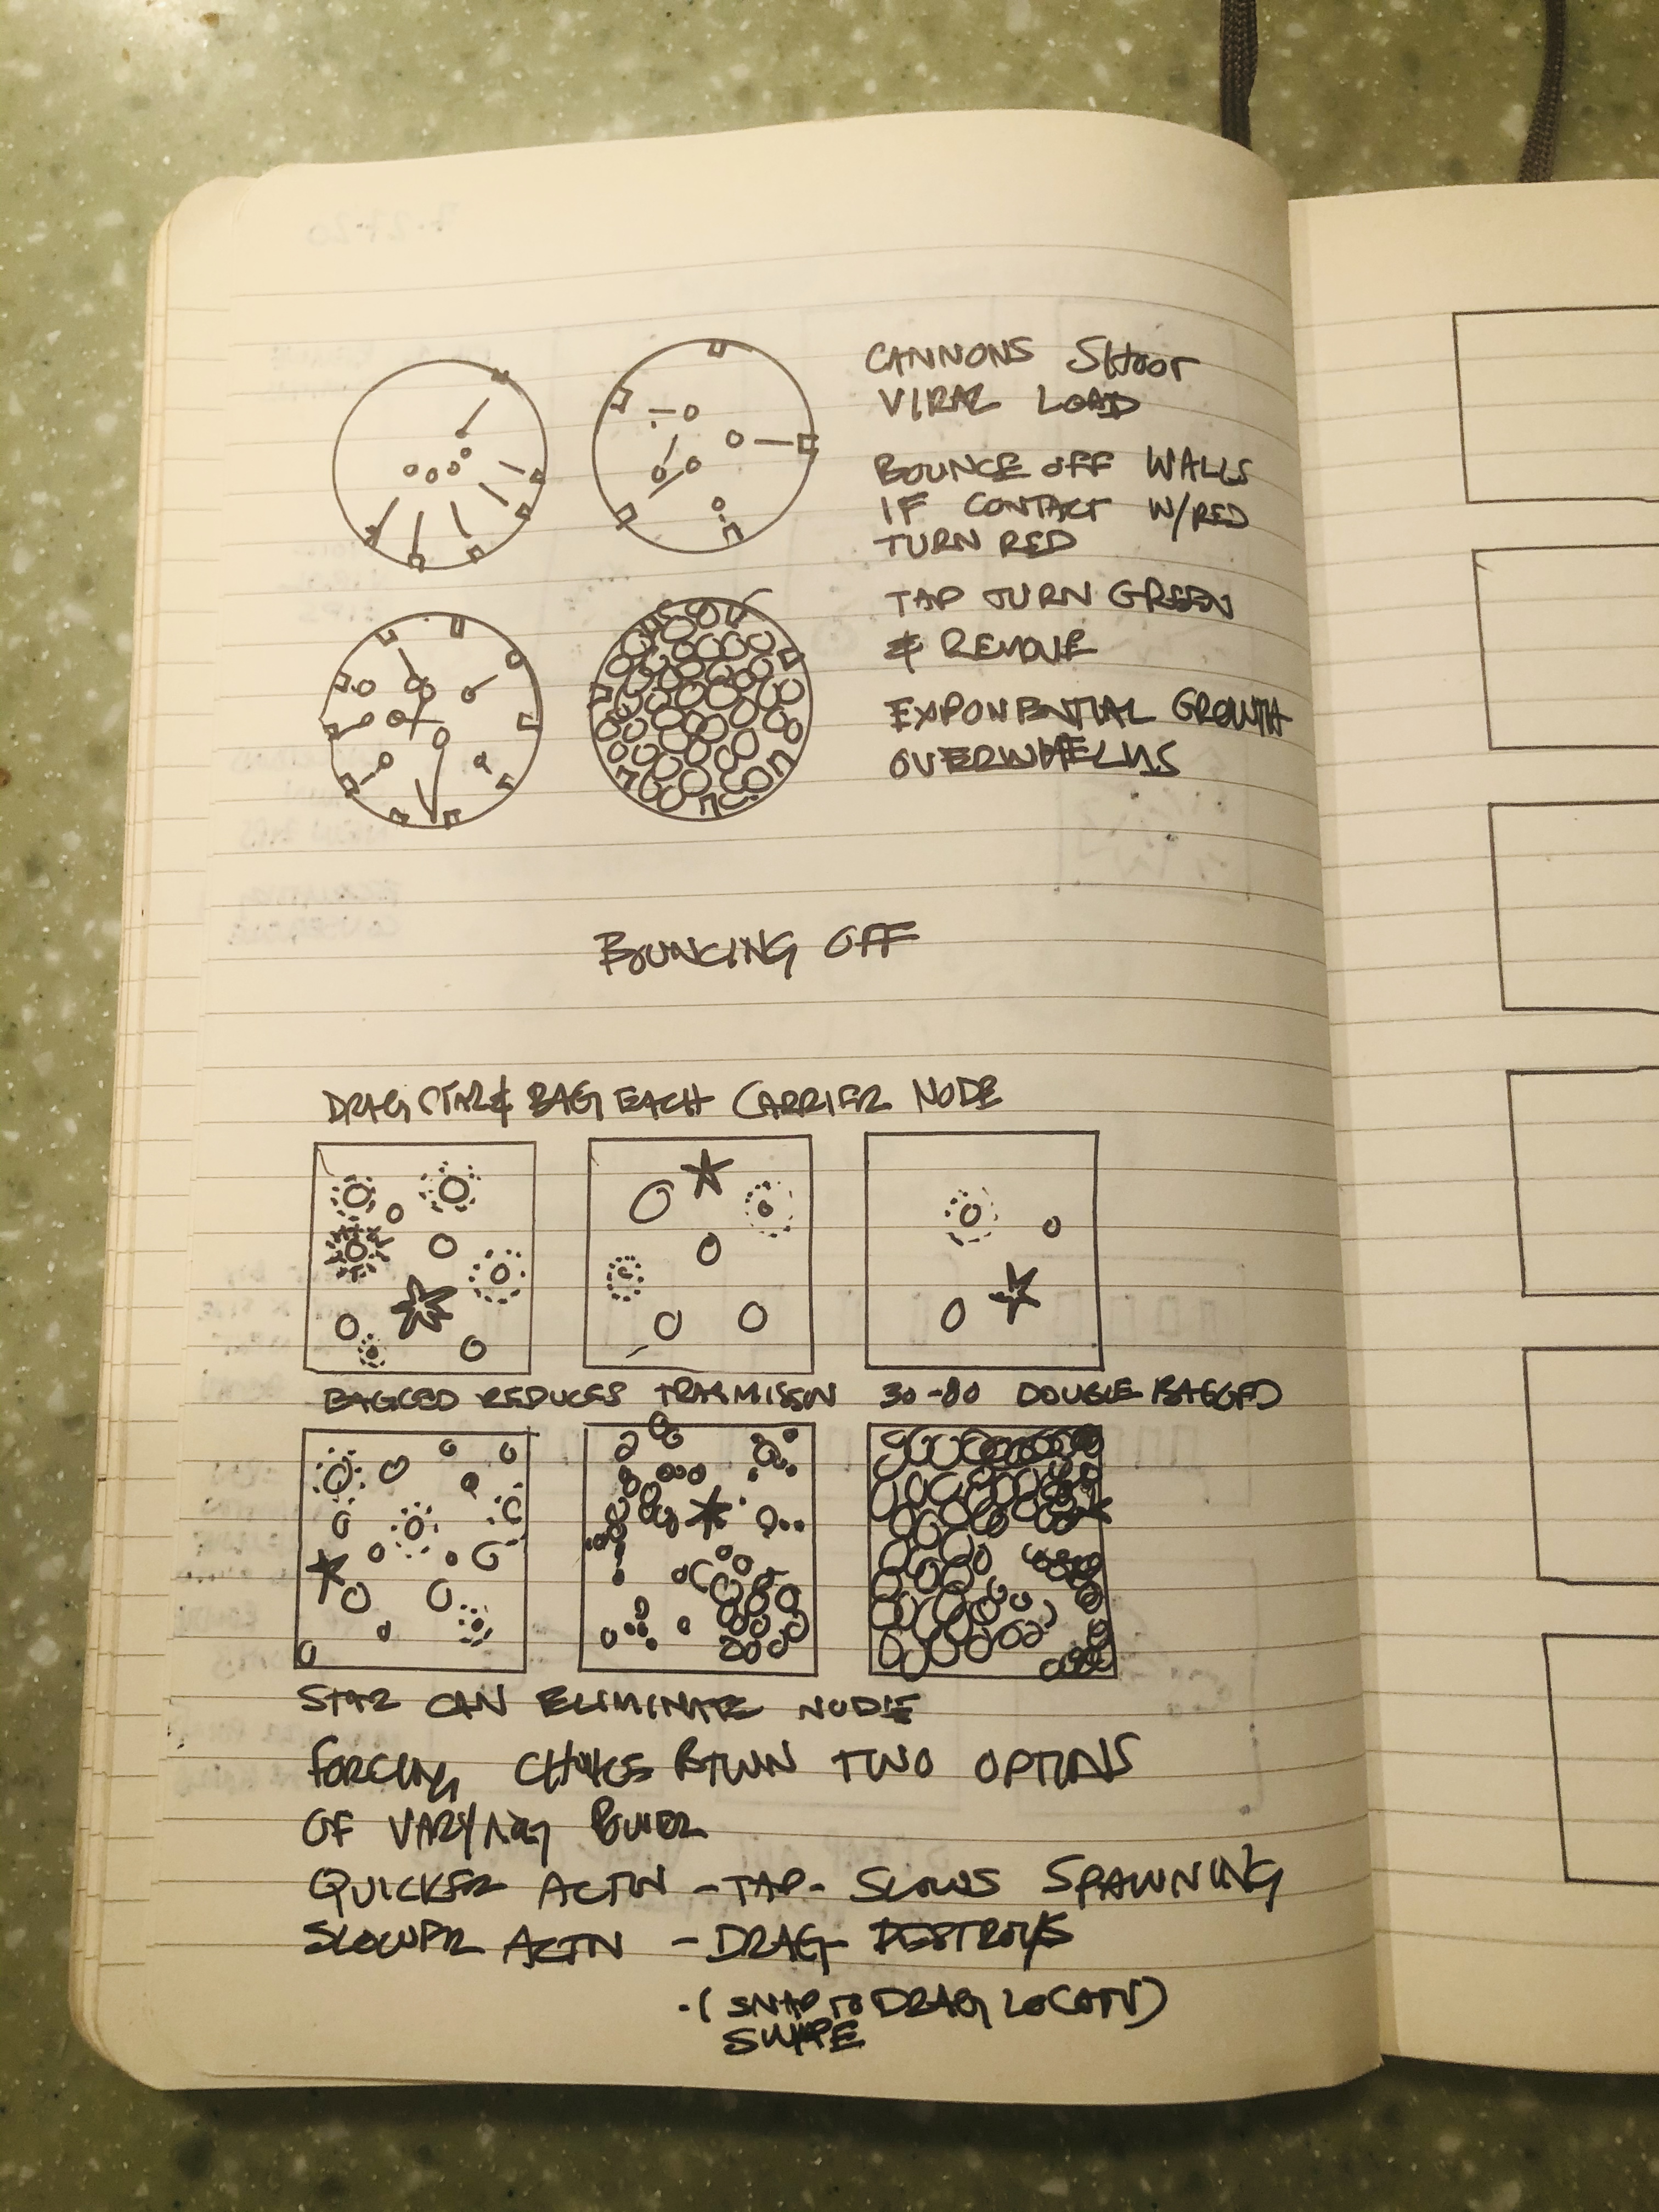 CANNONS SHOOT
VIRAL LOAD
BOUNCE OFF WALLS
IF CONTACT W/RED
TURN RED
TAP TURN GREEN
& REMOVE
EXPONENTIAL GROWTH
OVERWHELMS
BOUNCING OFF
DRAG STAR & BAG EACH CARRIER NODE
BAGGED REDUCES TRASMISSON 30-80 DOUBLE BAGGED
STAR CAN ELIMINATE NODE
FORCING CHOICES BTWN TWO OPTIONS
OF VARYING POWER
QUICKER ACTN - TAP - SLOWS SPAWNING
SLOWER ACTN - DRAG DESTROYS
- (SNAP TO DRAG LOCATN)
SWIPE